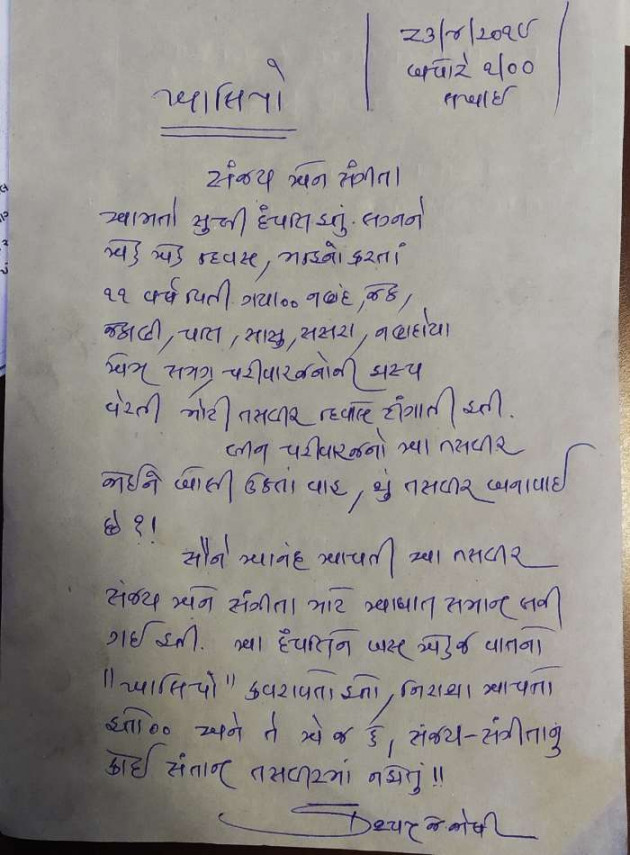 ૨૩/૪/૨૦૧૮
બપોરે ૧/૦૦
ખાલિપો
સંજય અને સંગીતા
આમતો સુખી દંપતિ હતું. લગ્નનો
એક એક દિવસ, મહિનો કરતાં
૧૧ વર્ષ વિતી ગયા.. નણંદ, જેઠ,
જેઠાણી, સાસુ, સસરા, નણદોયા
એમ સમગ્ર પરીવારજનોની હાસ્ય
વેરતી મોટી તસવીર દિવાલે ટીંગાતી હતી.
પરીવારજનો આ તસવીર
જોઇને બોલી ઉઠતાં વાહ, શું તસવીર બનાવાઇ
છે ?!
સૌને આનંદ આપતી આ તસવીર
સંજય અને સંગીતા માટે આઘાત સમાન બની
ગઇ હતી. આ દંપતિને બસ એકજ વાતનો
"ખાલિપો" કવરાવતો હતો, નિરાશા આપતો
હતો.. અને તે એ જ કે, સંજય-સંગીતાનું
કોઇ સંતાન તસવીરમાં નહોતું !!